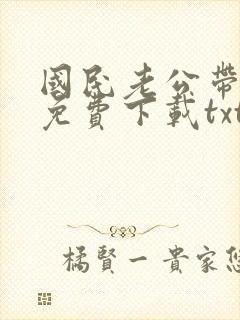 國民老公帶
免費下載txt
橘賢一貴家悠